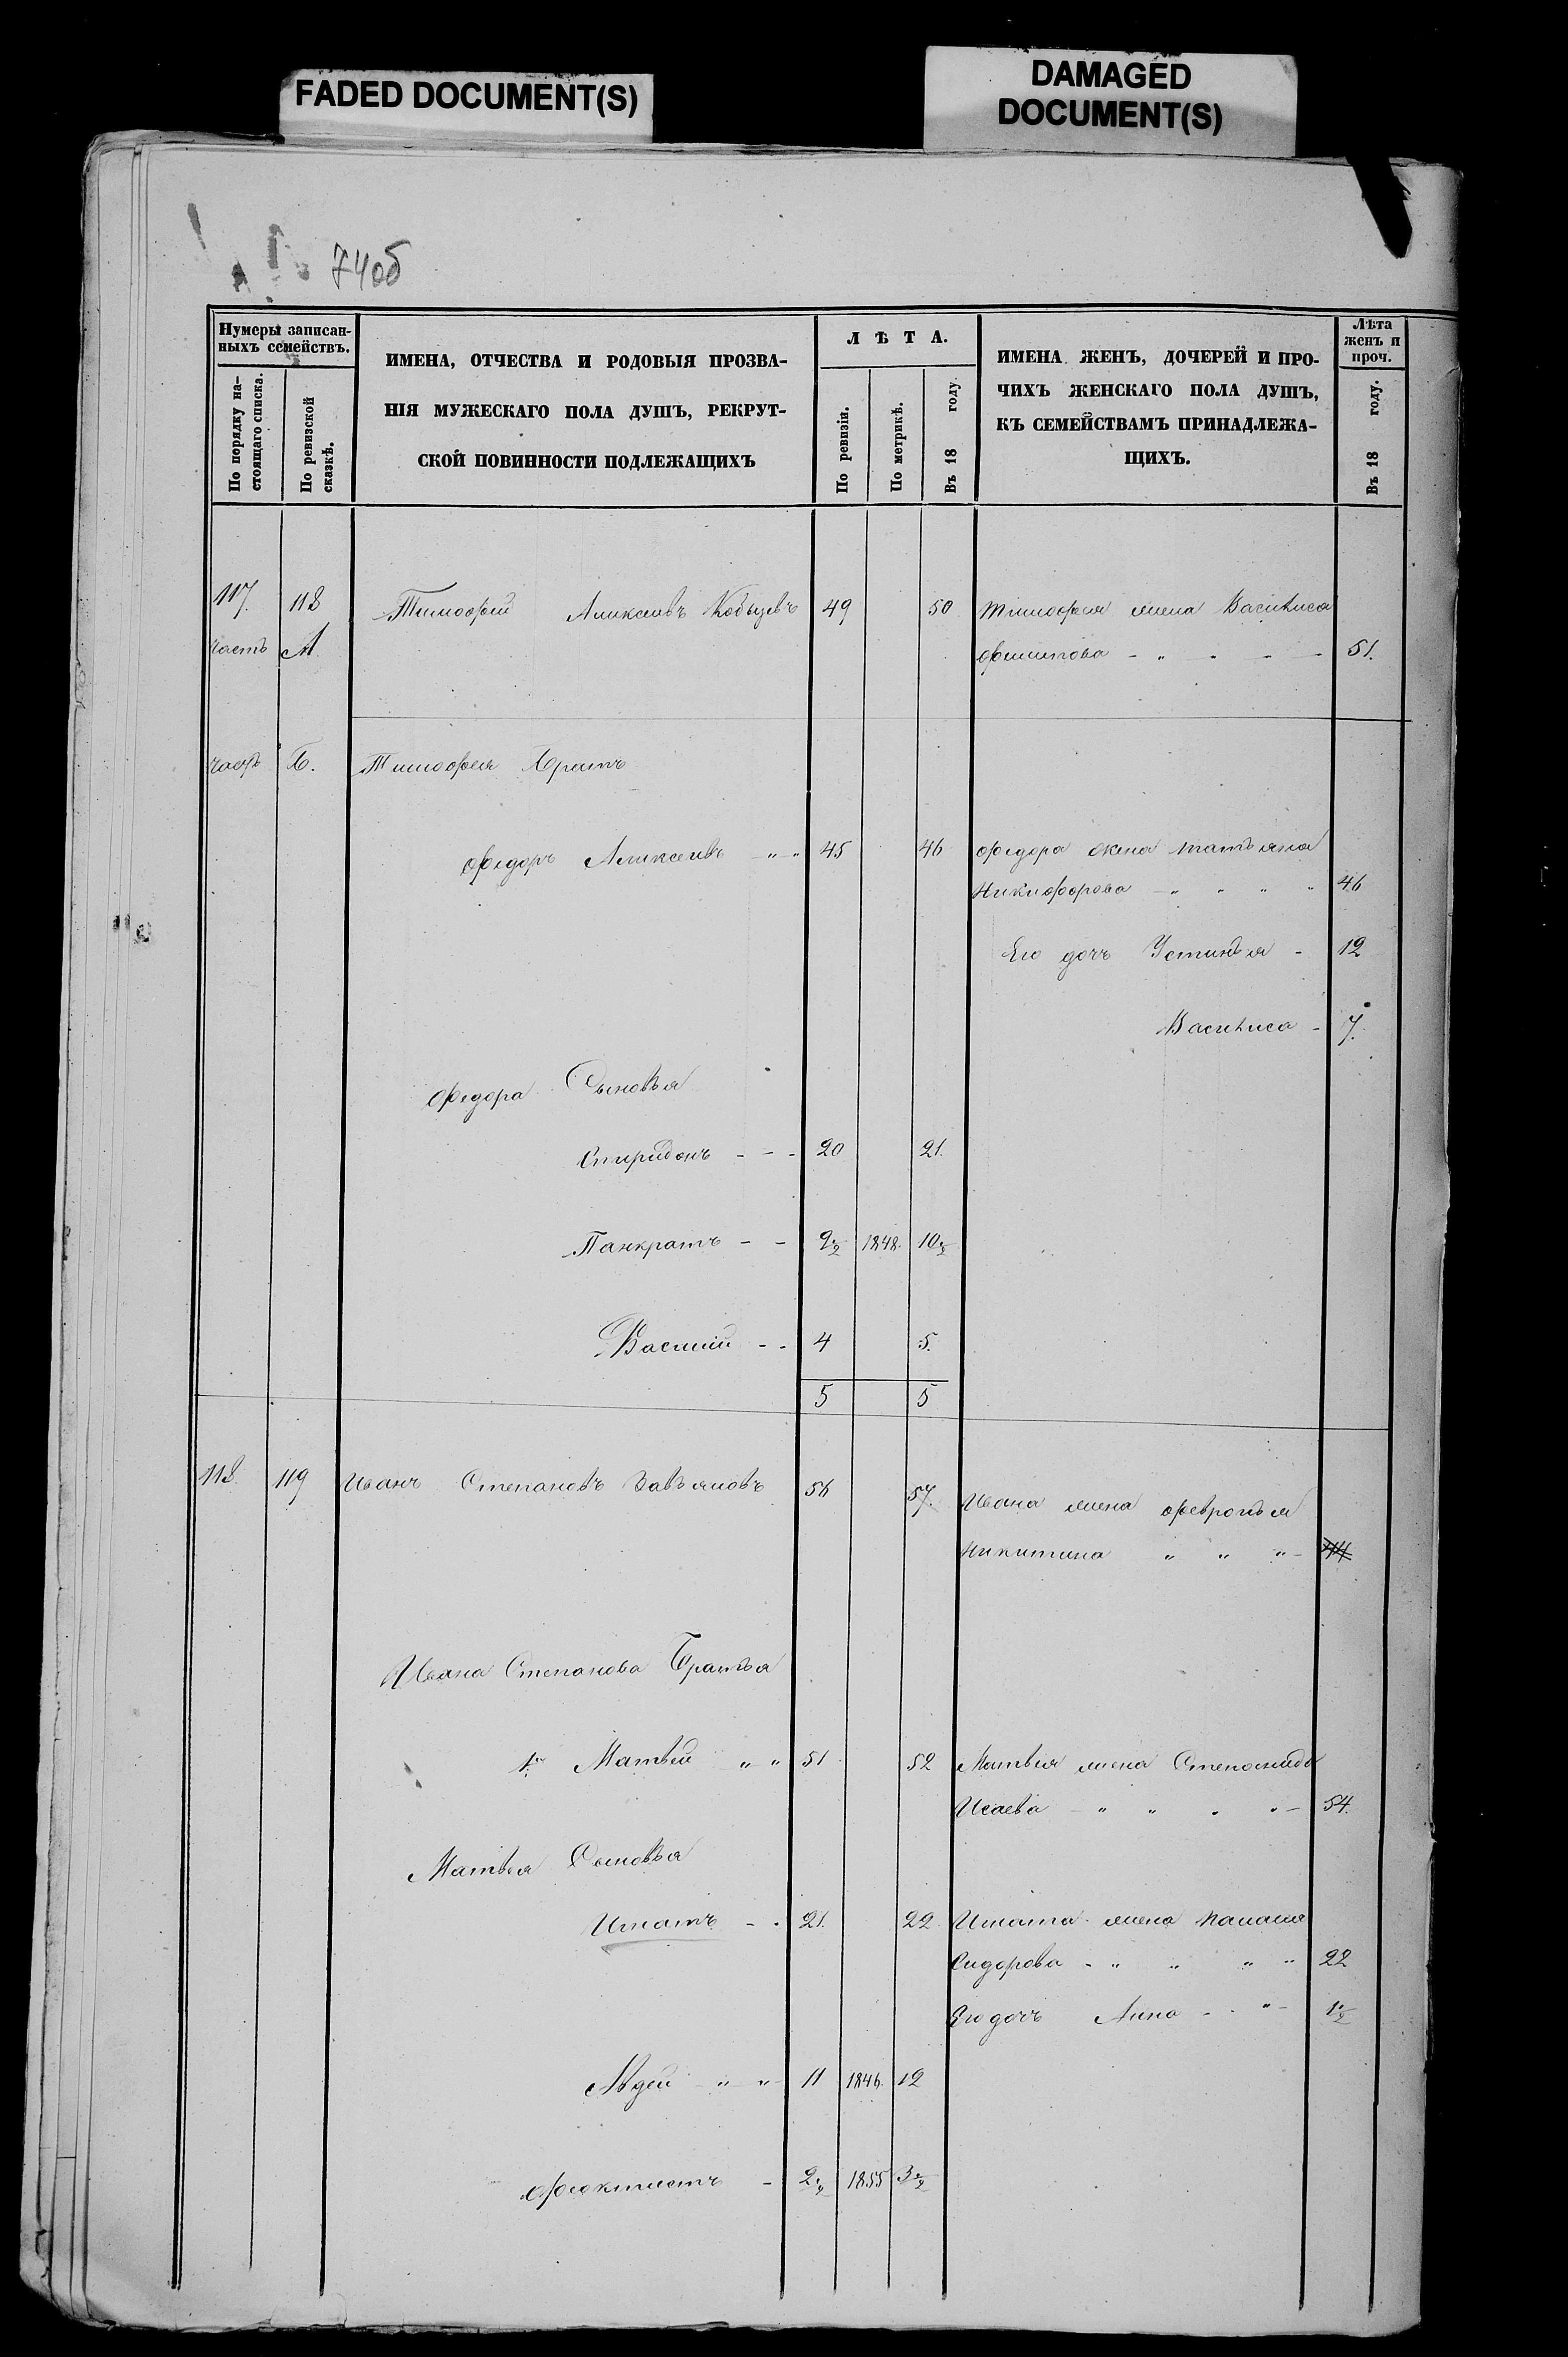 FADED DOCUMENT(S)
DAMAGED
DOCUMENT(S)
74об
Нумеры записан-
ныхъ семействъ.
По порядку на-
стоящаго списка.
По ревизской
сказкѣ.
ИМЕНА, ОТЧЕСТВА И РОДОВЫЯ ПРОЗВА-
НІЯ МУЖЕСКАГО ПОЛА ДУШЪ, РЕКРУТ-
СКОЙ ПОВИННОСТИ ПОДЛЕЖАЩИХЪ
ЛѢТА.
По ревизіи.
По метрикѣ.
Въ 18 году.
ИМЕНА ЖЕНЪ, ДОЧЕРЕЙ И ПРО-
ЧИХЪ ЖЕНСКАГО ПОЛА ДУШЪ,
КЪ СЕМЕЙСТВАМЪ ПРИНАДЛЕЖА-
ЩИХЪ.
Лѣта
женъ и
проч.
Въ 18 году.
117. 118 Тимофей Алексеевъ 49 50 Тимофея жена Василиса
часть А 51.
часть Б. Тимофея Братъ
Федоръ Алексеевъ 45 46 Федора жена Татьяна
Никифорова 46
Его дочь Устинья 12
Василиса 7.
Федора Сыновья
Спиридонъ 20 21.
Панкратъ 9½ 1848. 10½
Василий 4 5.
5 5
118. 119 Иванъ Степановъ Завьяловъ 56 57. Ивана жена Февронья
Никитина 44
Ивана Степанова Братья
1й Матвей 51 52 Матвея жена Степанида
Исаева 54.
Матвея Сыновья
Игнатъ 21. 22 Игната жена
Сидорова 22
Его дочь Анна 1½
11 1846. 12
Феоктистъ 2½ 1855 3½